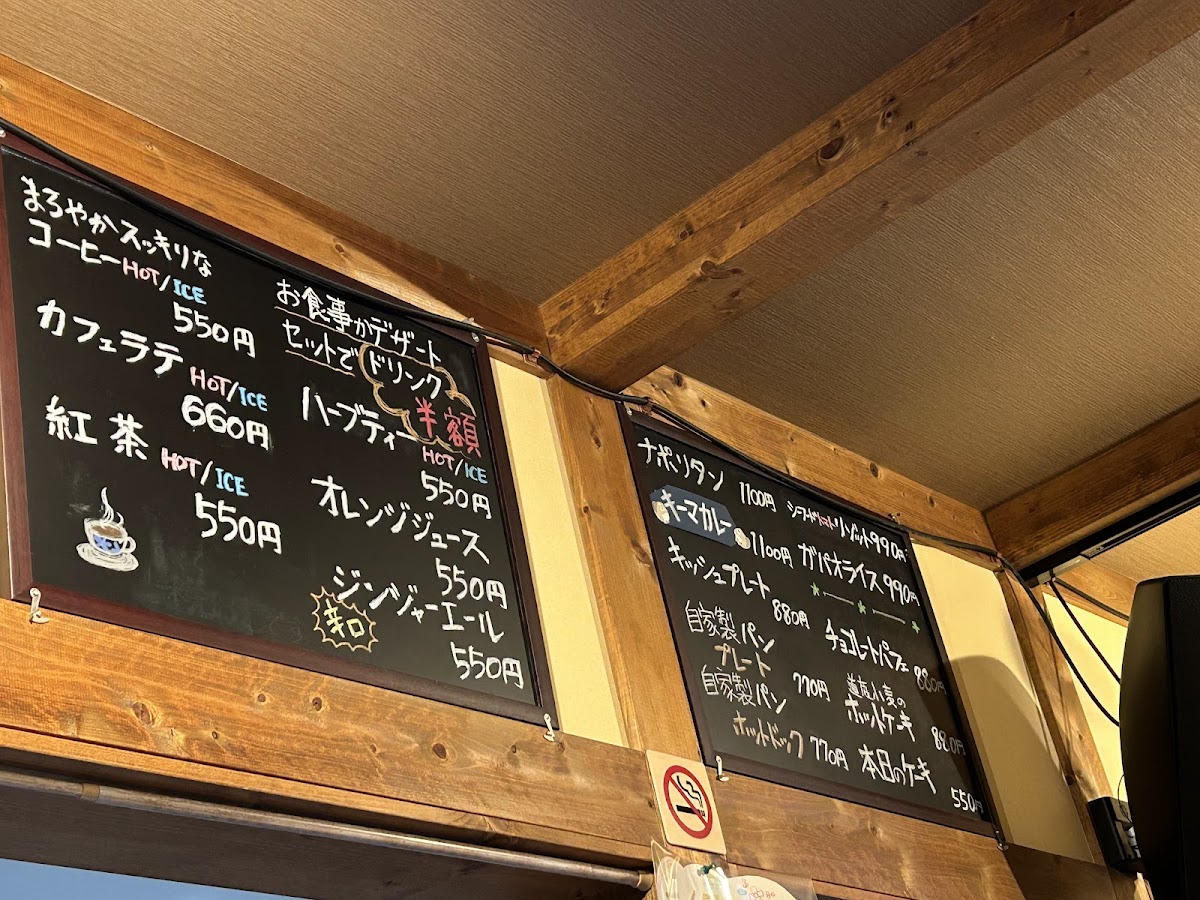 まろやかスッキリな
コーヒーHOT/ICE
550円
カフェラテ
HOT/ICE
660円
紅茶 HOT/ICE
550円
お食事かデザート
セットでドリンク
半額
ハーブティー
HOT/ICE
550円
オレンジジュース
550円
ジンジャーエール
辛口
550円
ナポリタン 1100円
キーマカレー
1100円
キッシュプレート
880円
自家製パン
プレート
770円
自家製パン
ホットドック 770円
シーフードトマトリゾット990円
ガパオライス990円
チョコレートパフェ
880円
道産小麦の
ホットケーキ
880円
本日のケーキ
550円